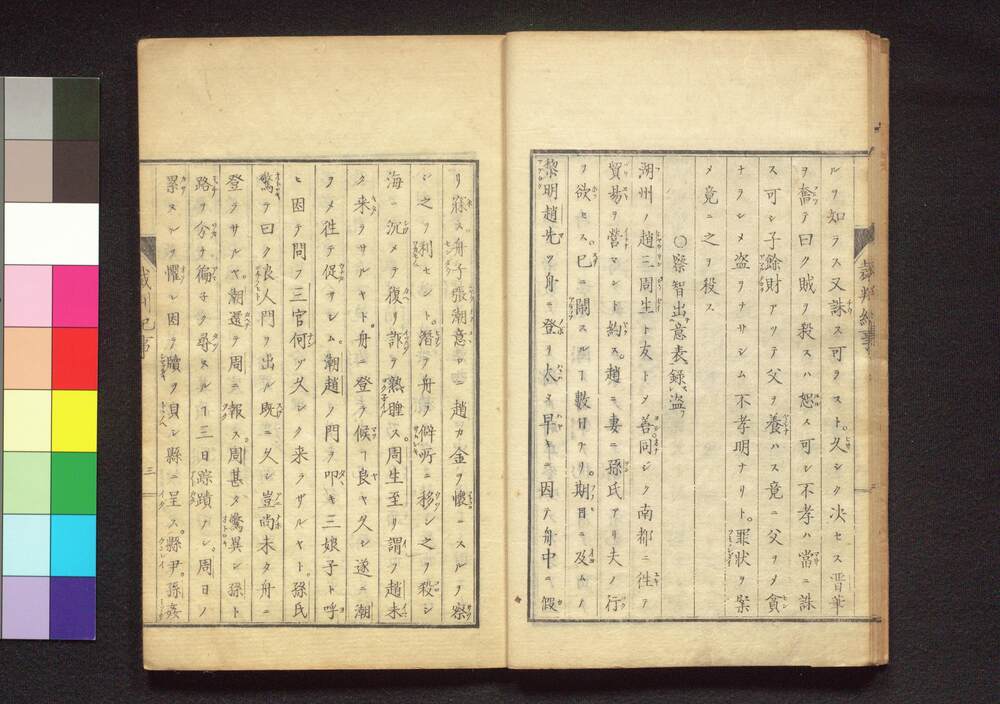 ルヲ知ラス又誅ス可ヲヤスト久シク决セス晋華
ヲ喬テ曰ク賊ヲ殺スハ恕ス可シ不孝ハ當ニ誅
ス可シ子餘財アツテ父ヲ養ハス竟ニ父ヲメ貪
ナラシメ盗ヲナサシム不孝明ナリト罪状ヲ案
メ竟ニ之ヲ殺ス
〇察智出意表錄盗
湖州ノ趙三周生ト友トメ善同シク南都ニ徃テ
貿易ヲ營マント約ス趙ニ妻ニ孫氏アリ夫ノ行
ヲ欲セス已ニ鬧スルヿ數日ナリ期日ニ及ムノ
黎明趙先ツ舟ニ登ル太タ早キニ因テ舟中ニ假
リ寐ス舟子張潮意 趙カ金ヲ懷ニスルヲ察
シ之ヲ利セント潜ヲ舟ヲ僻所ニ移シ之ヲ殺シ
海ニ沉メテ復リ詐ヲ熟睡ス周生至リ謂フ趙未
タ来ラサルヤト舟ニ登ヲ候ヿ良ヤ久シ遂ニ潮
ヲメ徃テ促サシム潮趙ノ門ヲ叩キ三娘子ト呼
ヒ因テ問フ三官何ソ久シク来ラザルヤト孫氏
驚テ曰ク良人門ヲ出ル既ニ久シ豈尚未タ舟ニ
登ラサルヤ潮還テ周ニ報ス周甚タ驚異シ孫ト
路ヲ分チ徧子ク尋スルヿ三日踪蹟ナシ周日ノ
累スルヲ懼レ因テ牘ヲ具シ縣ニ呈ス縣尹孫姦
裁判紀事
三